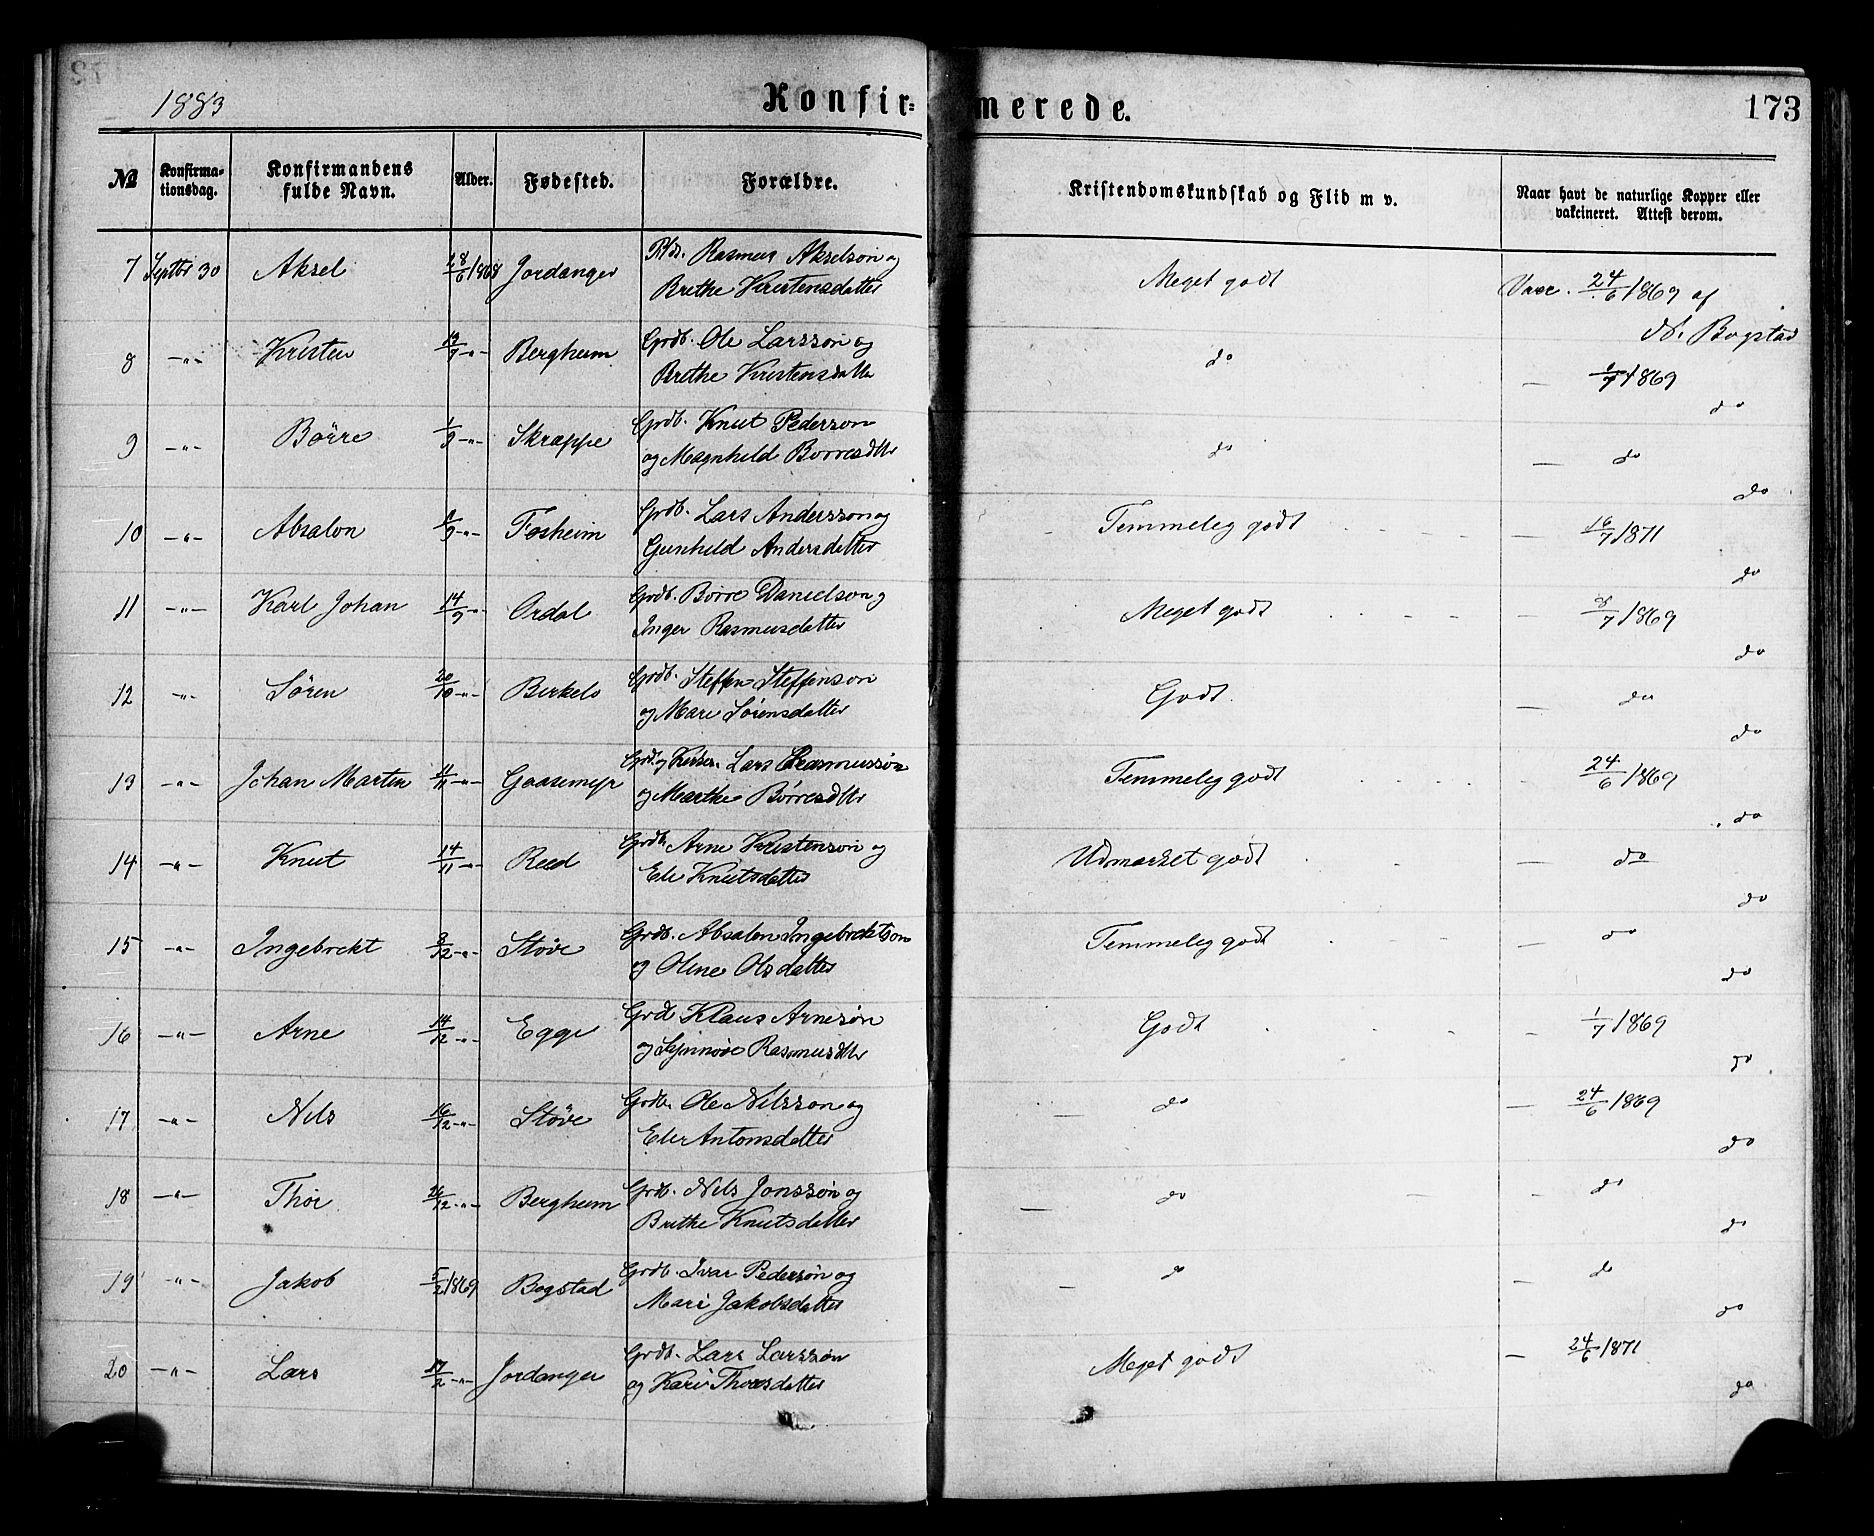 1883 Konfirmerede. 173
№ Konfirmationsdag. Konfirmandens fulde Navn. Alder. Fødested. Forældre. Kristendomskundskab og Flid m v. Naar havt de naturlige Kopper eller vakcineret. Attest derom.
7 Septbr 30 Aksel 28/6 1868 Jordanger Rasmus Akselson og Meget godt Vacc. 24/6 1869 af
Brithe Kristensdatter N. Bogstad
8 -"- Kristen 19/7 -"- Bergheim Grdb. Ole Larsson og do — 1/7 1869
Brithe Kristensdatter do
9 -"- Börre 1/9 -"- Skrappe Grdb. Knut Pederson do — do
og Magnhild Borresdtr do
10 -"- Absalon 9 -"- Fosheim Grdb. Lars Andersson og Temmelig godt — 16/7 1871
Gunhild Andersdatter do
11 -"- Karl Johan 14/9 -"- Ordal Grdb. Börre Danielson og Meget godt — 8/7 1869
Inger Rasmusdatter do
12 -"- Sören 20/10 -"- Birkelo Grdb. Steffen Steffenson Godt. — do
og Mari Sørensdatter do
13 -"- Johan Martin 11/11 -"- Gaasemyr Lars Rasmussøn Temmelig godt 24/6 1869
og Marthe Börresdtr do
14 -"- Knut 14/11 -"- Reed Grdb. Arne Kristenson og Udmærket godt — do
Eli Knutsdatter do
15 -"- Ingebrekt 3/12 -"- Støve Grdb. Absalon Ingebrektson Temmelig godt — do
og Oline Olsdatter do
16 -"- Arne 14/12 -"- Egge Grdb Klaus Arnesøn Godt — 1/7 1869
og Synnøve Rasmusdtr do
17 -"- Nils 16/12 -"- Støve Grdb. Ole Nilsson og — do — 24/6 1869
Eli Antonsdatter do
18 -"- Thor 26/12 -"- Bergheim Grdb. Nils Jonssøn og — do - do
Brithe Knutsdatter do
19 -"- Jakob 5/2 1869 Bogstad Grdb. Ivar Pedersøn og — do — do
Mari Jakobsdatter do
20 -"- Lars 17/2 -"- Jordanger Grdb. Lars Larssøn Meget godt — 24/6 1871
og Kari Thorsdatter do